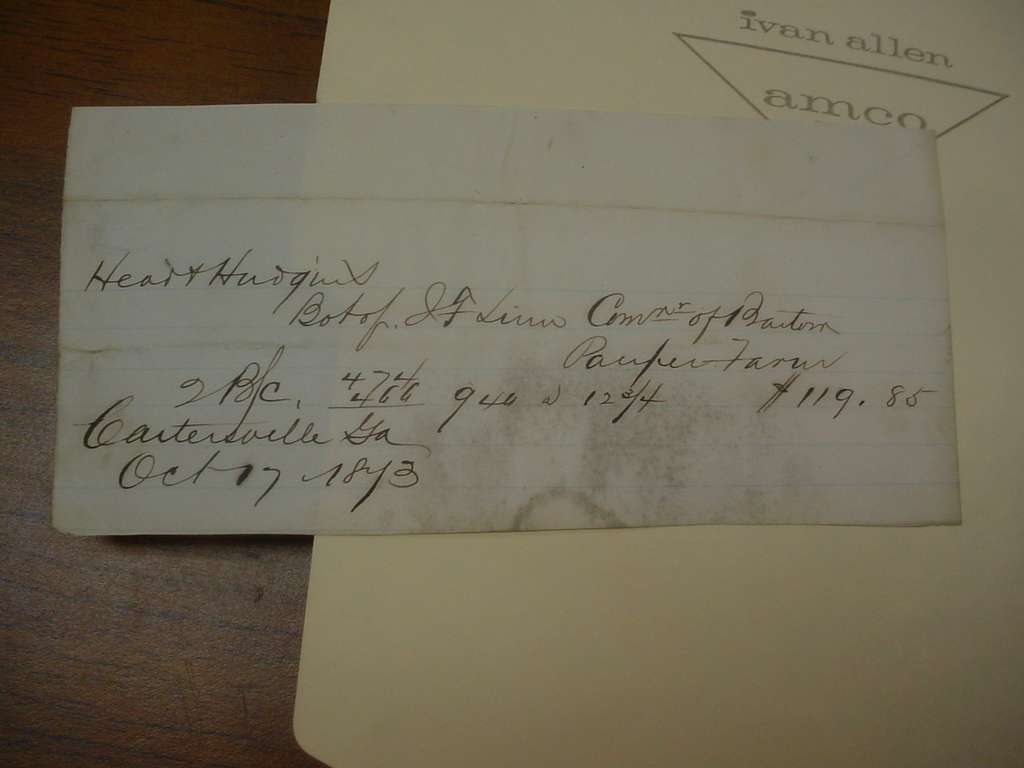 ivan allen
amco
Heart Hudgins
Bot of. J F Linn Comnr of Bartow
Pauper Farm
2 B/c. 474 466 940 @ 12 3/4 $119.85
Cartersville Ga
Oct 17 1873